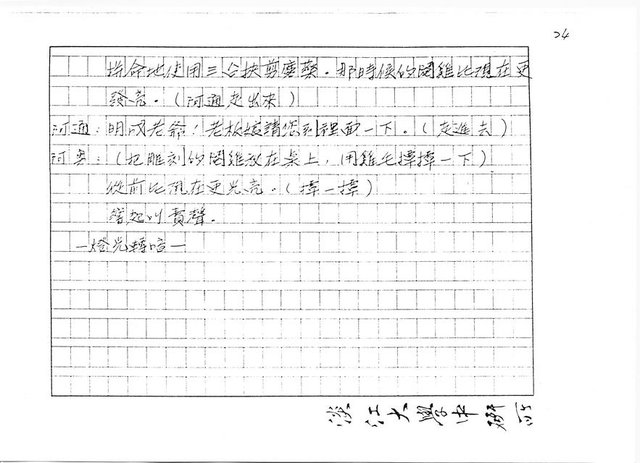 24
拚命地使用三合扶剪塵藥。那時候的闘雞比現在更
發亮。(阿通走出來)
阿通：明成老爺！老板娘請您到裡面一下。(走進去)
阿吉：(把雕刻的闘雞放在桌上，用雞毛撢撢一下)
從前比現在更光亮。(撢一撢)
響起叫賣聲。
—燈光轉暗—
淡江大學中研所